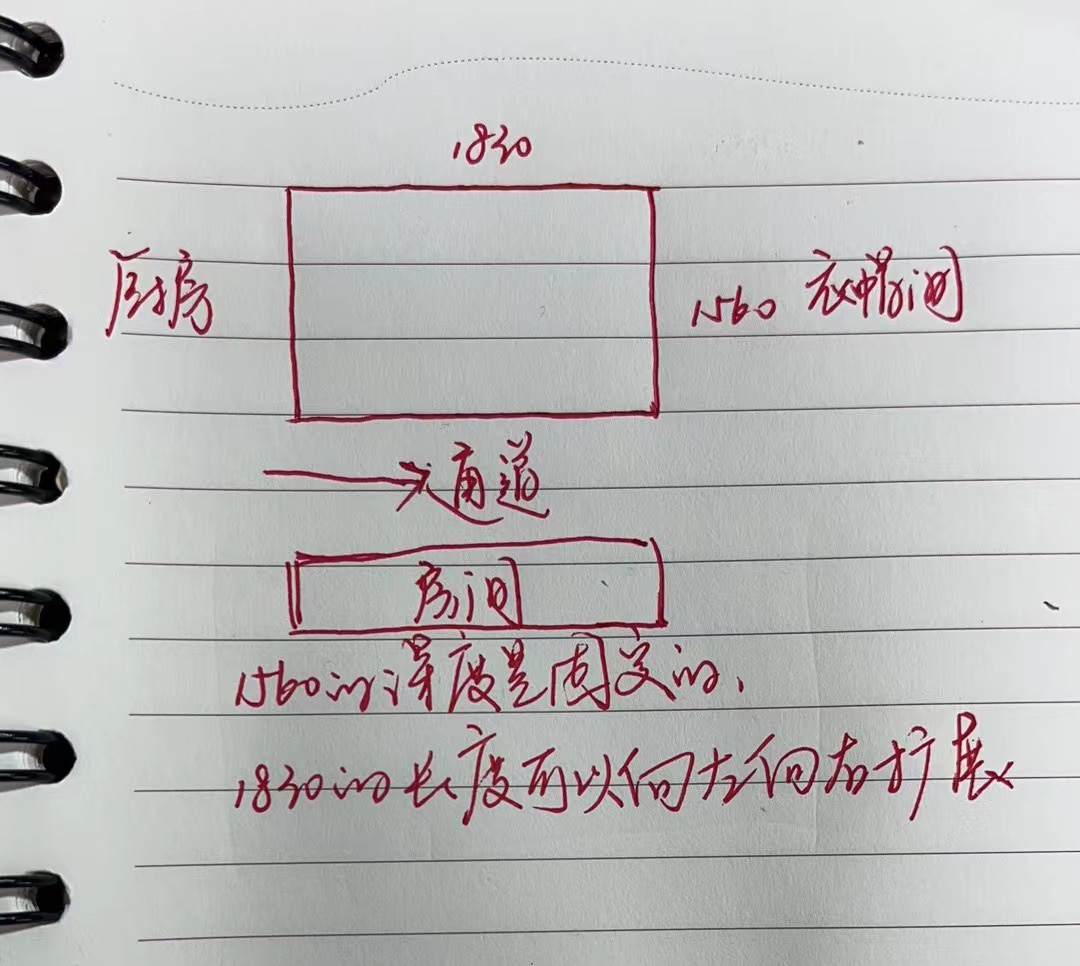 1830
厨房
1560 衣帽间
通道
房间
1560的深度是固定的,
1830的长度可以向左向右扩展